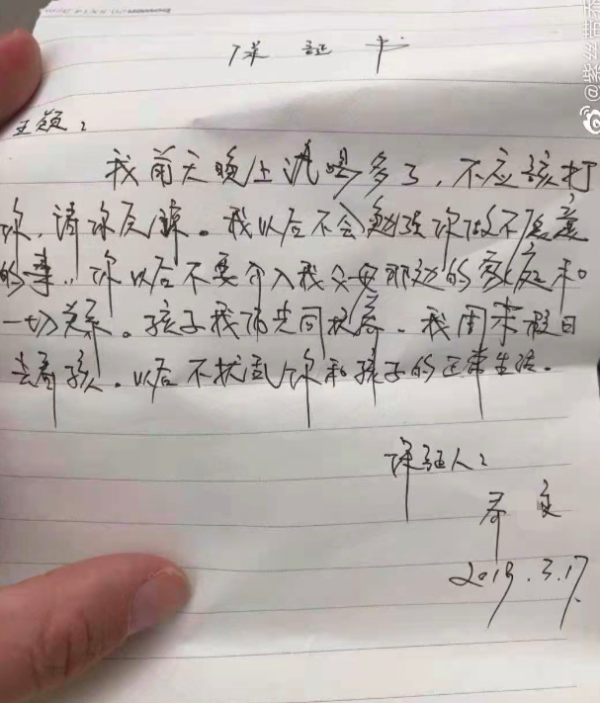 保证书
王颖：
我前天晚上酒喝多了，不应该打
你，请你原谅。我以后不会勉强你做不愿意
的事，你以后不要介入我父母那边的家庭和
一切关系。孩子我们共同抚养。我周末假日
去看孩。以后不扰乱你和孩子的正常生活。
保证人：
乔
2019.3.17.